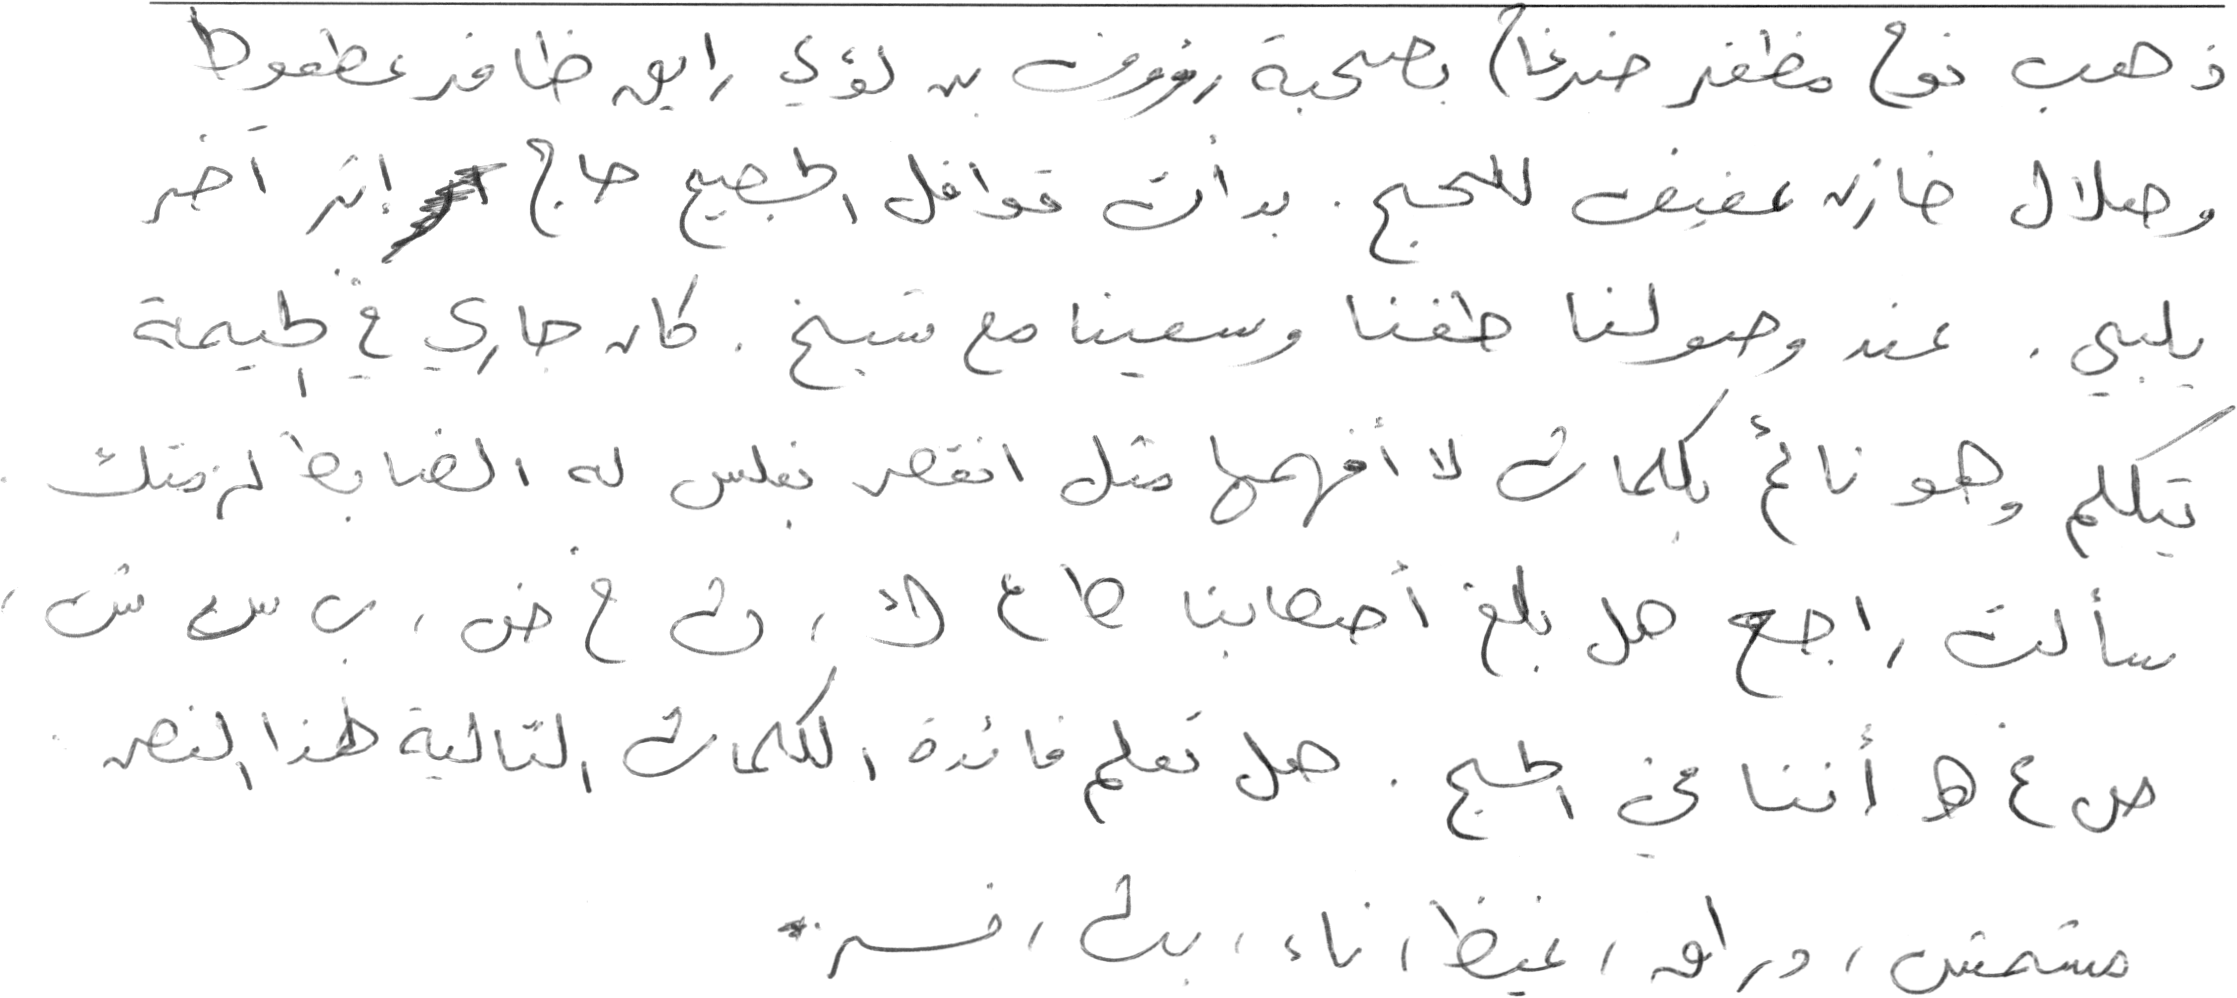 ذهب نوح مظفر ضرغام بصحبة رؤوف بن لؤي رايق ظافر عطعوط
وهلال خازن عفيف للحج. بدأت قوافل الحجيج حاج إثر آخر
يلبي. عند وصولنا طفنا وسعينا مع شيخ. كان جاري في الخيمة
يتكلم وهو نائم بكلمات لا أفهمها مثل انقص بفلس له الضابط لم مثلث.
سألت راجح هل بلغ أصحابنا ط ع ك، ث خ ض، ب س ش،
ص غ ه أننا في الحج. هل تعلم فائدة الكلمات التالية لهذا النص
مشمش، دراق، غيظ، ناء، بث، فسر.